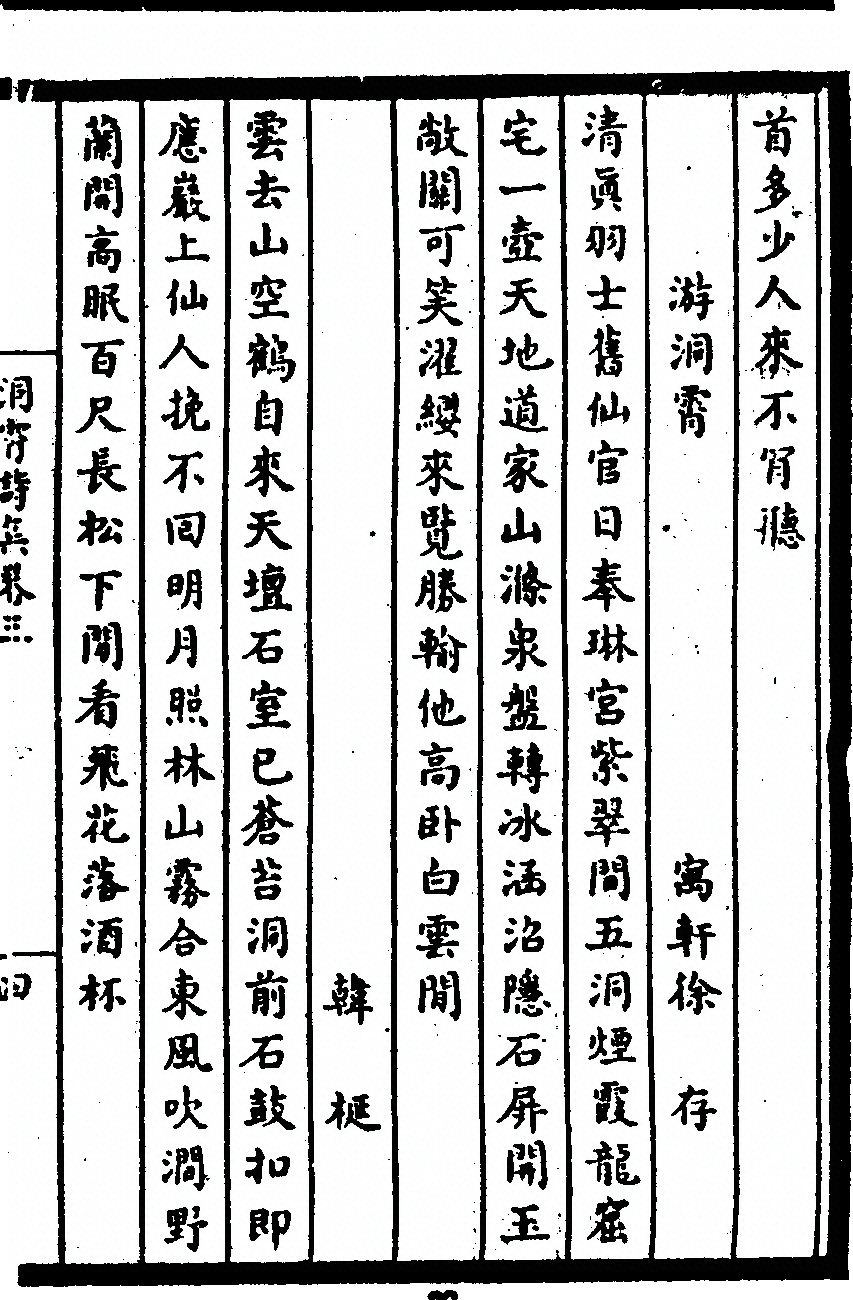 首多少人來不肯聽
游洞霄　寓軒徐　存
清眞羽士舊仙官日奉琳宮紫翠間五洞煙霞龍窟
宅一壺天地道家山滌泉盤轉冰涵沼隱石屏開玉
敞關可笑濯纓來覽勝輸他高卧白雲閒
韓　梃
雲去山空鶴自來天壇石室已蒼苔洞前石鼓扣即
應巖上仙人挽不回明月照林山霧合東風吹澗野
蘭開高眠百尺長松下閒看飛花落酒杯
洞霄詩集卷三